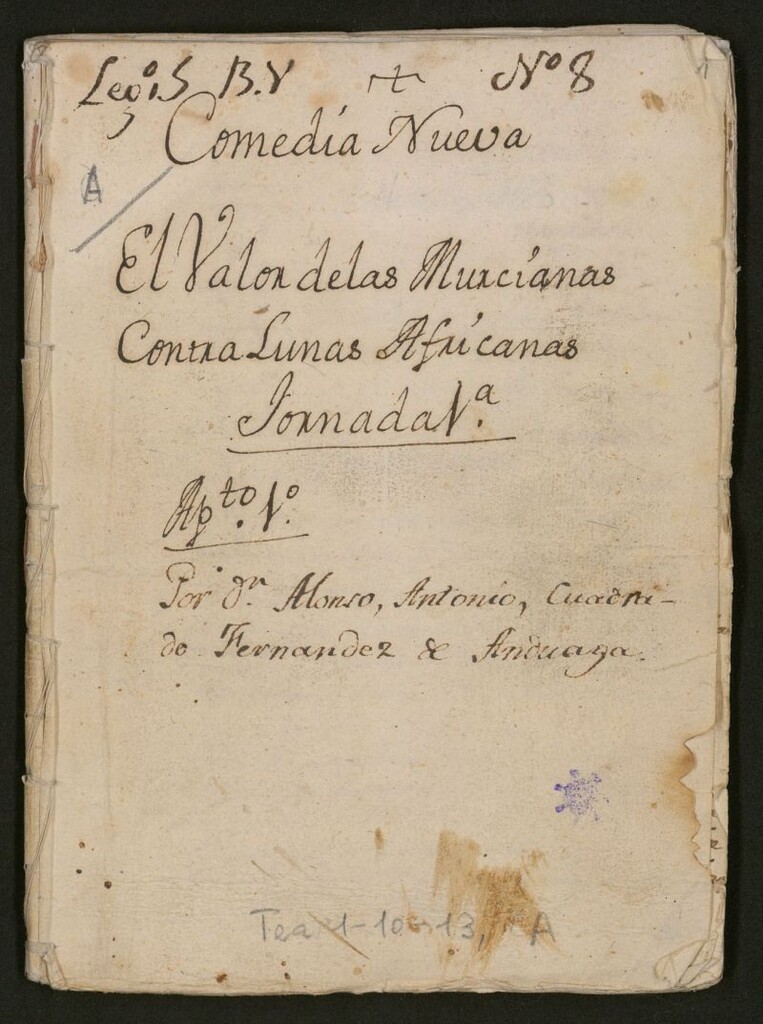 Lego. 5 B. V + No 8
Comedia Nueva
A
El Valor de las Murcianas
Contra Lunas Africanas
Jornada 1.ª
Ap.to 1.º
Por Dn. Alonso, Antonio, Cuadra-
do Fernandez de Anduaga.
Tea 1-10-13, A